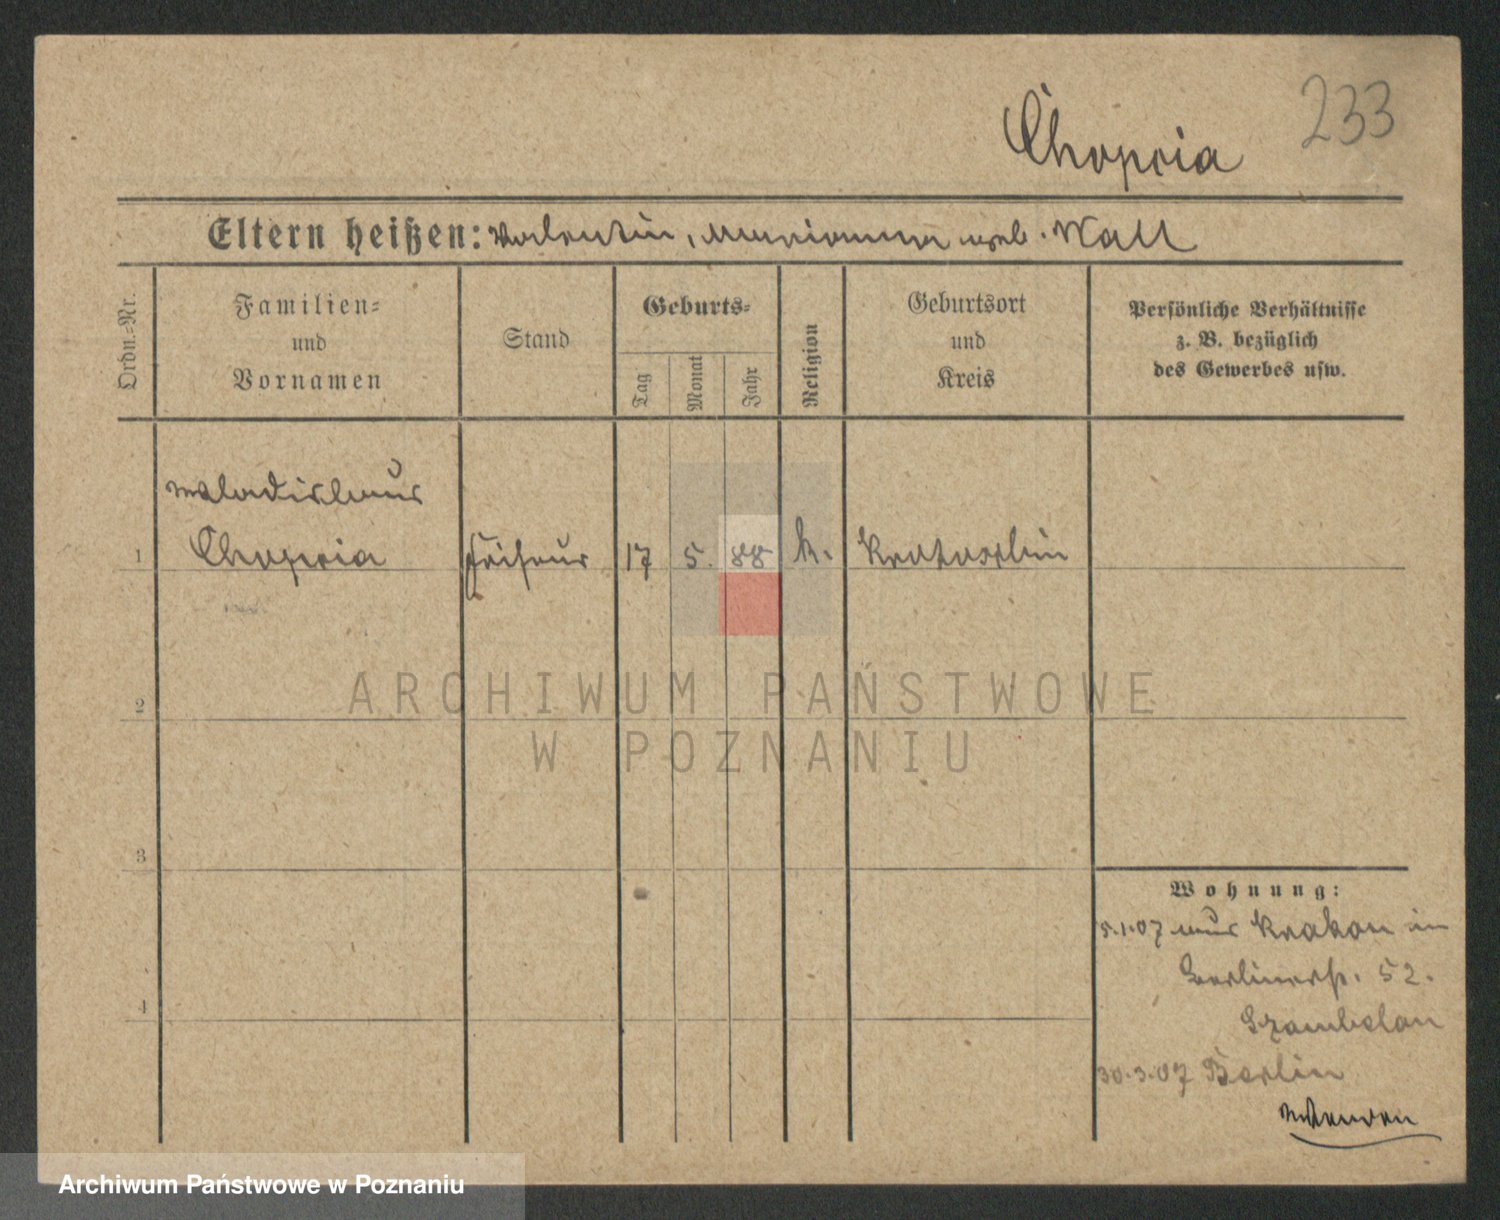 233
Chopcia
Eltern heißen: Valentin, Marianna geb. Wall
Ordn.=Nr.
Familien=
und
Vornamen
Stand
Geburts=
Tag
Monat
Jahr
Religion
Geburtsort
und
Kreis
Persönliche Verhältnisse
z. B. bezüglich
des Gewerbes usw.
Wladislaus
1 Chopcia Friseur 17 5. 88 k. Krotoschin
ARCHIWUM PAŃSTWOWE
2
W POZNANIU
3
Wohnung:
5.1.07 aus Krakau in
Berlinerstr. 52.
4
Szambelan
30.3.07 Berlin
Archiwum Państwowe w Poznaniu